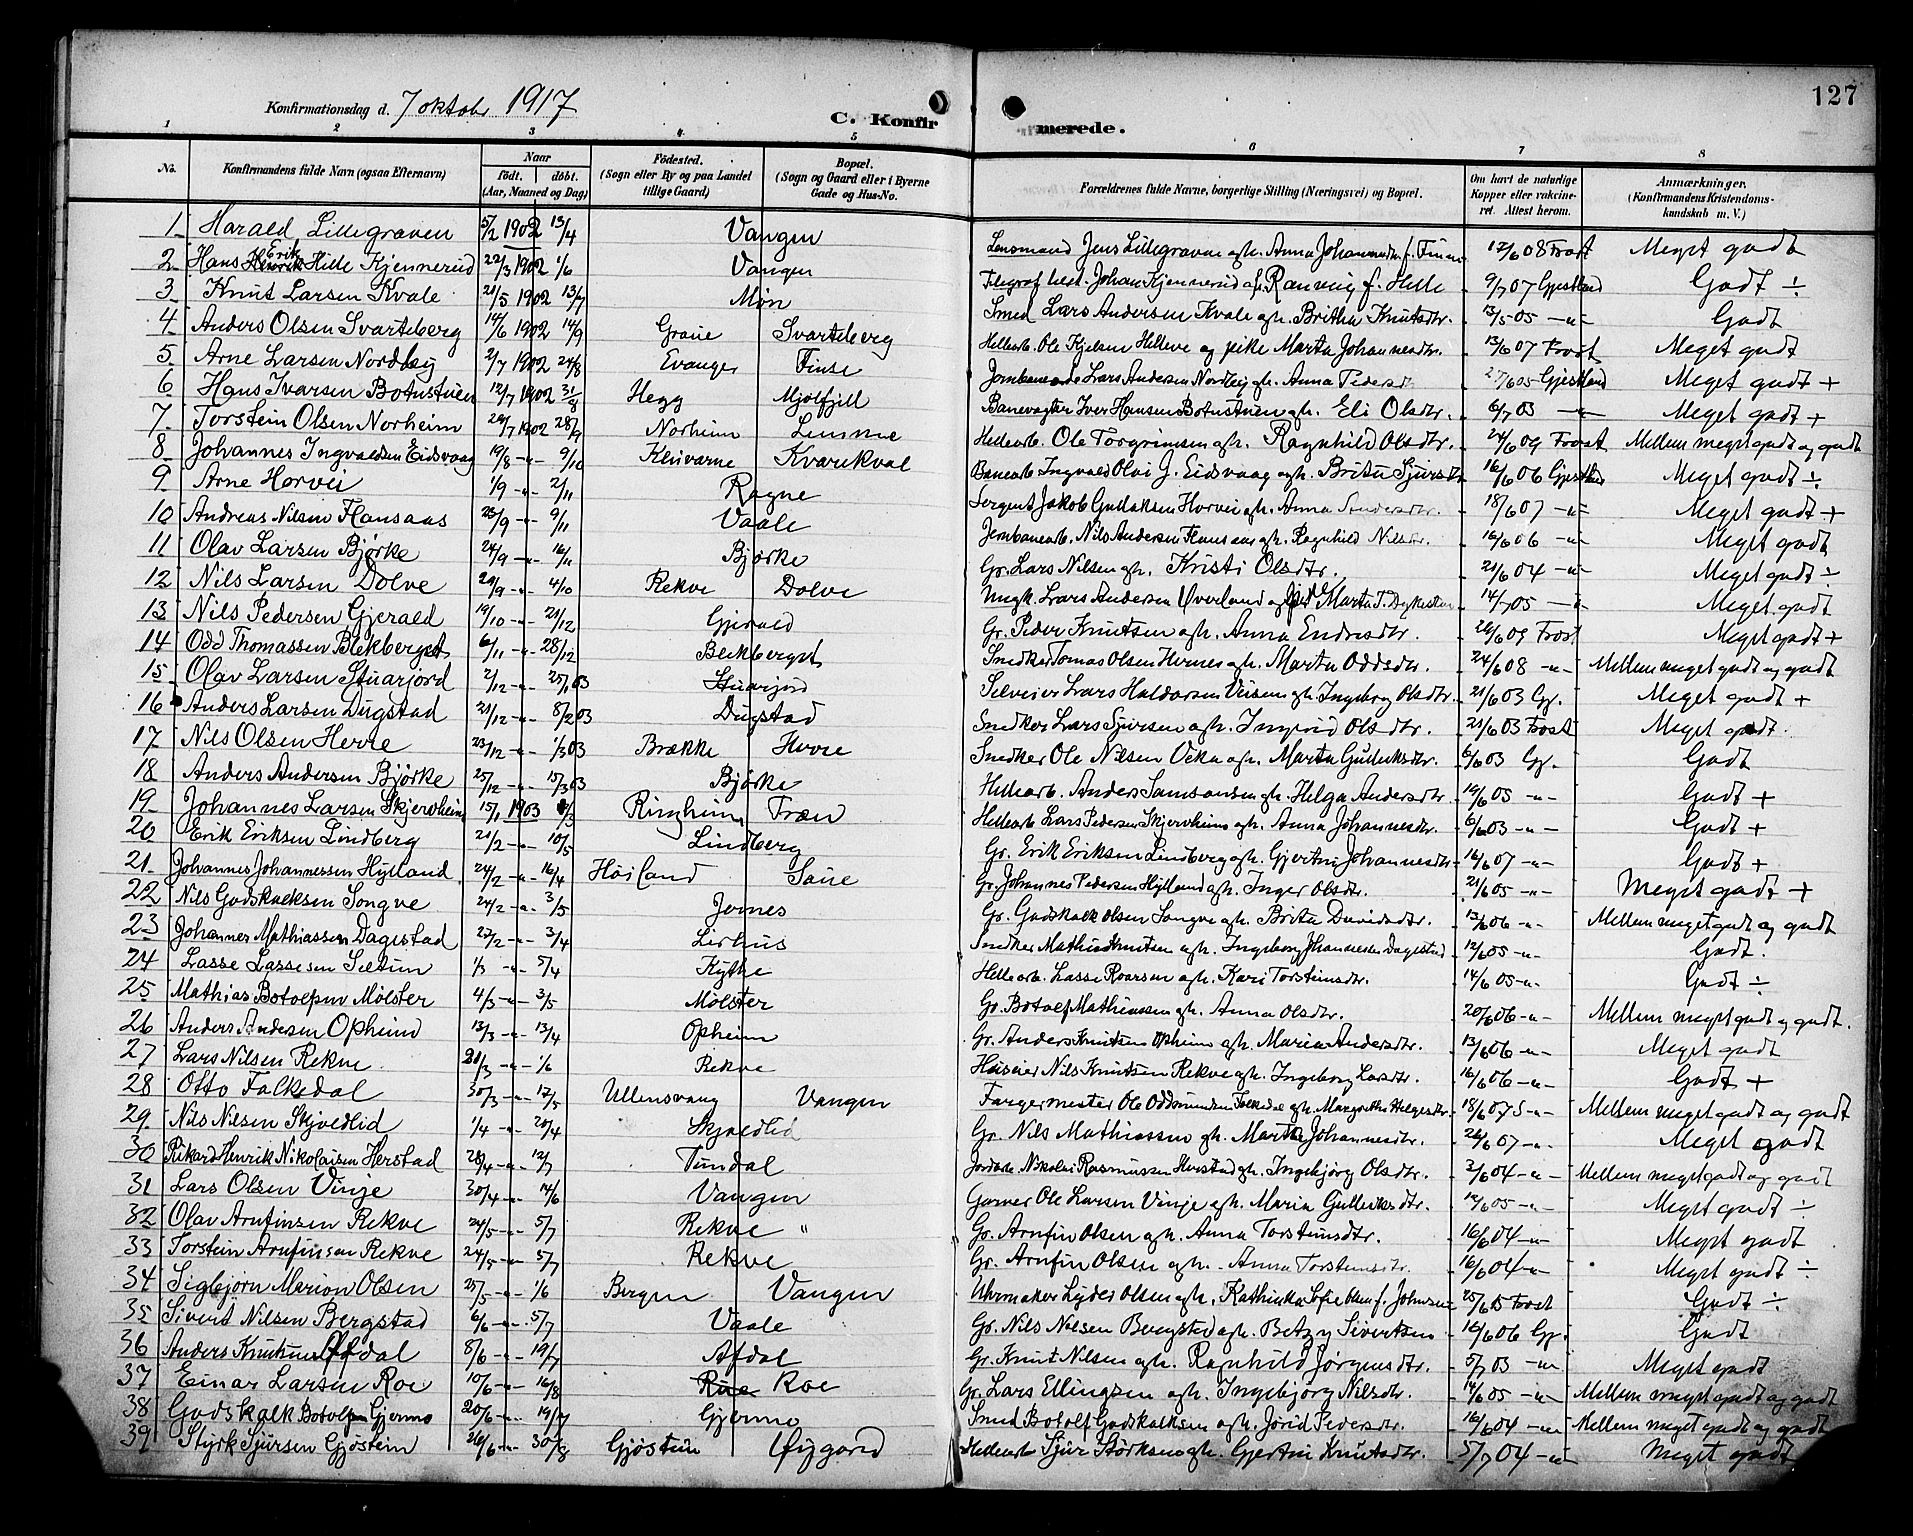 127
Konfirmationsdag d. 7 oktobr 1917
C. Konfirmerede.
1 2 3 4 5 6 7 8
No. Konfirmandens fulde Navn (ogsaa Efternavn) Naar født. døbt. (Aar, Maaned og Dag) Födested. (Sogn eller By og paa Landet tillige Gaard) Bopæl. (Sogn og Gaard eller i Byerne Gade og Hus-No. Forældrenes fulde Navne, borgerlige Stilling (Næringsvei) og Bopæl. Om havt de naturlige Kopper eller vakcineret. Attest herom. Anmærkninger. (Konfirmandens Kristendomskundskab m. V.)
1 Harald Lillegraven 5/2 1902 13/4 Vangen Lensmand Jens Lillegraven gh. Anna 17/6 08 Frost Meget godt
2 Hans Erik Hille Kjennerud 22/3 1902 1/6 Vangen Johan Kjennerud Ranveig f. Helle 9/7 07 Gjestland Godt ÷
3 Knut Larsen Kvale 21/5 1902 13/7 Møn Smed Lars Andersen Kvale gh. Britha Knutsdtr. 13/5 05 -"- Godt
4 Anders Olsen Svarteberg 14/6 1902 14/9 Graue Svarteberg Hellearb. Ole Kjelsen Helleve og pike Marta Johannesdtr. 13/6 07 Frost Meget godt
5 Arne Larsen Nordbey 2/7 1902 24/8 Evanger Finse Lars Andersen Nordbey gh. Anna Pedersdt Gjestland Meget godt +
6 Hans Ivarsen Botnstuen 12/7 1902 31/8 Hegg Mjølfjell Banevogter Iver Hansen Botnstuen gh. Eli Olsdtr. 6/7 03 -"- Meget godt +
7 Torstein Olsen Norheim 24/7 1902 28/9 Norheim Lemme Hellearb. Ole Torgrimsen gh. Ragnhild Olsdtr. 24/6 09 Frost Mellem meget godt og godt
8 Johannes Ingvaldsen Eidsvaag 19/8 -"- 9/10 Klüvarne Kvarekval Banearb. Ingvald Eidsvaag gh. Brita Sjursdtr 16/6 06 Gjestland Meget godt ÷
9 Arne Horvei 1/9 -"- 2/11 Rogne Sergent Jakob Gullaksen Horvei gh. Anna Andersdtr. 18/6 07 -"- Meget godt +
10 Andreas Nilsen Flansaas 23/9 -"- 9/11 Vaale Jernbanearb. Nils Andersen Flansaas gh. Ragnhild Nilsdtr. 16/6 06 -"- Meget godt
11 Olav Larsen Bjørke 24/9 -"- 16/11 Bjørke Gr. Lars Nilsen gh. Kristi Olsdtr. 21/6 04 -"- Meget godt ÷
12 Nils Larsen Dolve 29/9 -"- 4/10 Rekve Dolve Lars Andersen Øverland Marta T. 14/7 05 -"- Meget godt
13 Nils Pedersen Gjerald 19/10 -"- 21/12 Gjerald Gr. Peder Knutsen gh. Anna Endresdtr. 26/6 09 Frost Meget godt +
14 Odd Thomassen Blekberget 6/11 -"- 28/12 Blekberget Snedker Tomas Olsen Hernes gh. Marta Oddsdtr. 24/6 08 -"- Mellem meget godt og godt
15 Olav Larsen Stuarjord 2/12 -"- 25/1 03 Stuarjord Selveier Lars Haldorsen gh. Ingeborg Olsdtr. 21/6 03 Gj. Meget godt +
16 Anders Larsen Dugstad 21/12 -"- 8/2 03 Dugstad Snedker Lars Sjursen gh. Ingerid Olsdtr. 21/6 03 Frost Meget godt.
17 Nils Olsen Herre 23/12 -"- 1/3 03 Brække Herre Snedker Ole Nilsen gh. Marta Gulleiksdtr 6/6 03 Gj. Godt
18 Anders Andersen Bjørke 25/12 -"- 15/3 03 Bjørke Hellearb. Anders Samsonsen gh. Helga Andersdtr 19/6 05 -"- Godt +
19 Johannes Larsen Skjervheim 15/1 1903 Ringheim Træn Hellearb. Lars Pedersen Skjervheim gh. Anna Johannesdtr. 6/6 03 -"- Godt +
20 Erik Eriksen Lindberg 21/2 -"- 10/5 Lindberg Gr. Erik Eriksen Lindberg gh. Gjertru Johannesdtr 16/6 07 -"- Godt +
21 Johannes Johannessen Hylland 24/2 -"- 16/4 Høiland Saue Gr. Johannes Pedersen Hylland gh. Inger Olsdtr. 21/6 05 -"- Meget godt +
22 Nils Godskalksen Songve 24/2 -"- 3/5 Jernes Gr. Godskalk Olsen Songve gh. Brita Davidsdtr. 13/6 06 -"- Mellem meget godt og godt
23 Johannes Mathiassen Dagestad 27/2 -"- 3/4 Lirhus Snedker Mathias Knutsen gh. Ingeborg Johannesdtr Dagestad 12/6 05 -"- Godt.
24 Lasse Lassesen Sætun 1/3 -"- 5/4 Kythe Hellearb. Lasse Roarsen gh. Kari Torsteinsdtr. 14/6 05 -"- Godt ÷
25 Mathias Botolfsen Mølster 4/3 -"- 3/5 Mølster Gr. Botolf Mathiassen gh. Anna Olsdtr. 20/6 06 -"- Mellem meget godt og godt.
26 Anders Andersen Opheim 13/3 -"- 13/4 Opheim Gr. Anders Knutsen Opheim gh. Maria Andersdtr. 13/6 06 -"- Meget godt
27 Lars Nilsen Rekve 21/3 -"- 1/6 Rekve Nils Knutsen Rekve gh. Ingeborg Larsdtr. 16/6 06 -"- Godt +
28 Otto Falkedal 30/3 -"- 17/5 Ullensvang Vangen Fargermester Ole Oddmundsen Falkedal gh. Margretha Helgesdtr. 18/6 07 -"- Mellem meget godt og godt
29 Nils Nilsen Skjvedlid 1/4 -"- 20/4 Skjvedlid Gr. Nils Mathiassen gh. Martha Johannesdtr. 26/6 07 -"- Meget godt
30 Rikard Henrik Nikolaisen Herstad 28/4 -"- 12/7 Tundal Jordarb. Nikolai Rasmussen Herstad gh. Ingebjørg Olsdtr. 3/6 04 -"- Mellem meget godt og godt
31 Lars Olsen Vinje 30/4 -"- 14/6 Vangen Garver Ole Larsen Vinje gh. Maria Gulleiksdtr. 12/6 05 -"- Meget godt ÷
32 Olav Arnfinsen Rekve 24/5 -"- 5/7 Rekve " Gr. Arnfin Olsen gh. Anna Torsteinsdtr. 16/6 04 -"- Meget godt
33 Torstein Arnfinsen Rekve 24/5 -"- 5/7 Rekve Gr. Arnfin Olsen gh. Anna Torsteinsdtr. 16/6 04 -"- Meget godt ÷
34 Sigbjørn Marion Olsen 25/5 -"- 1/6 Bergen Vangen Uhrmaker Lyder Olsen gh. Kathinka Sofie Olsen f. Johnsen 25/6 15 Frost Godt ÷
35 Sivert Nilsen Bergstad 6/6 -"- 5/7 Vaale Gr. Nils Nilsen Bergstad gh. Betzy Sivertsen 16/6 06 Gj. Godt
36 Anders Knutsen Afdal 8/6 -"- 19/7 Afdal Gr. Knut Nilsen gh. Ragnhild Jørgensdtr. 5/7 03 -"- Meget godt
37 Einar Larsen Roe 10/6 -"- 16/8 Rue Roe Gr. Lars Ellingsen gh. Ingebjørg Nilsdtr. 14/6 05 -"- Mellem meget godt og godt
38 Godskalk Botolfsen Gjerme 20/6 -"- 19/7 Gjerme Smed Botolf Godskalksen gh. Jorid Pedersdtr. 16/6 04 -"- Mellem meget godt og godt
39 Styrk Sjursen Gjøstein 26/6 -"- 30/8 Gjøstein Øygard Hellearb Sjur Størksen gh. Gjertru Knutsdtr. 5/7 04 -"- Meget godt